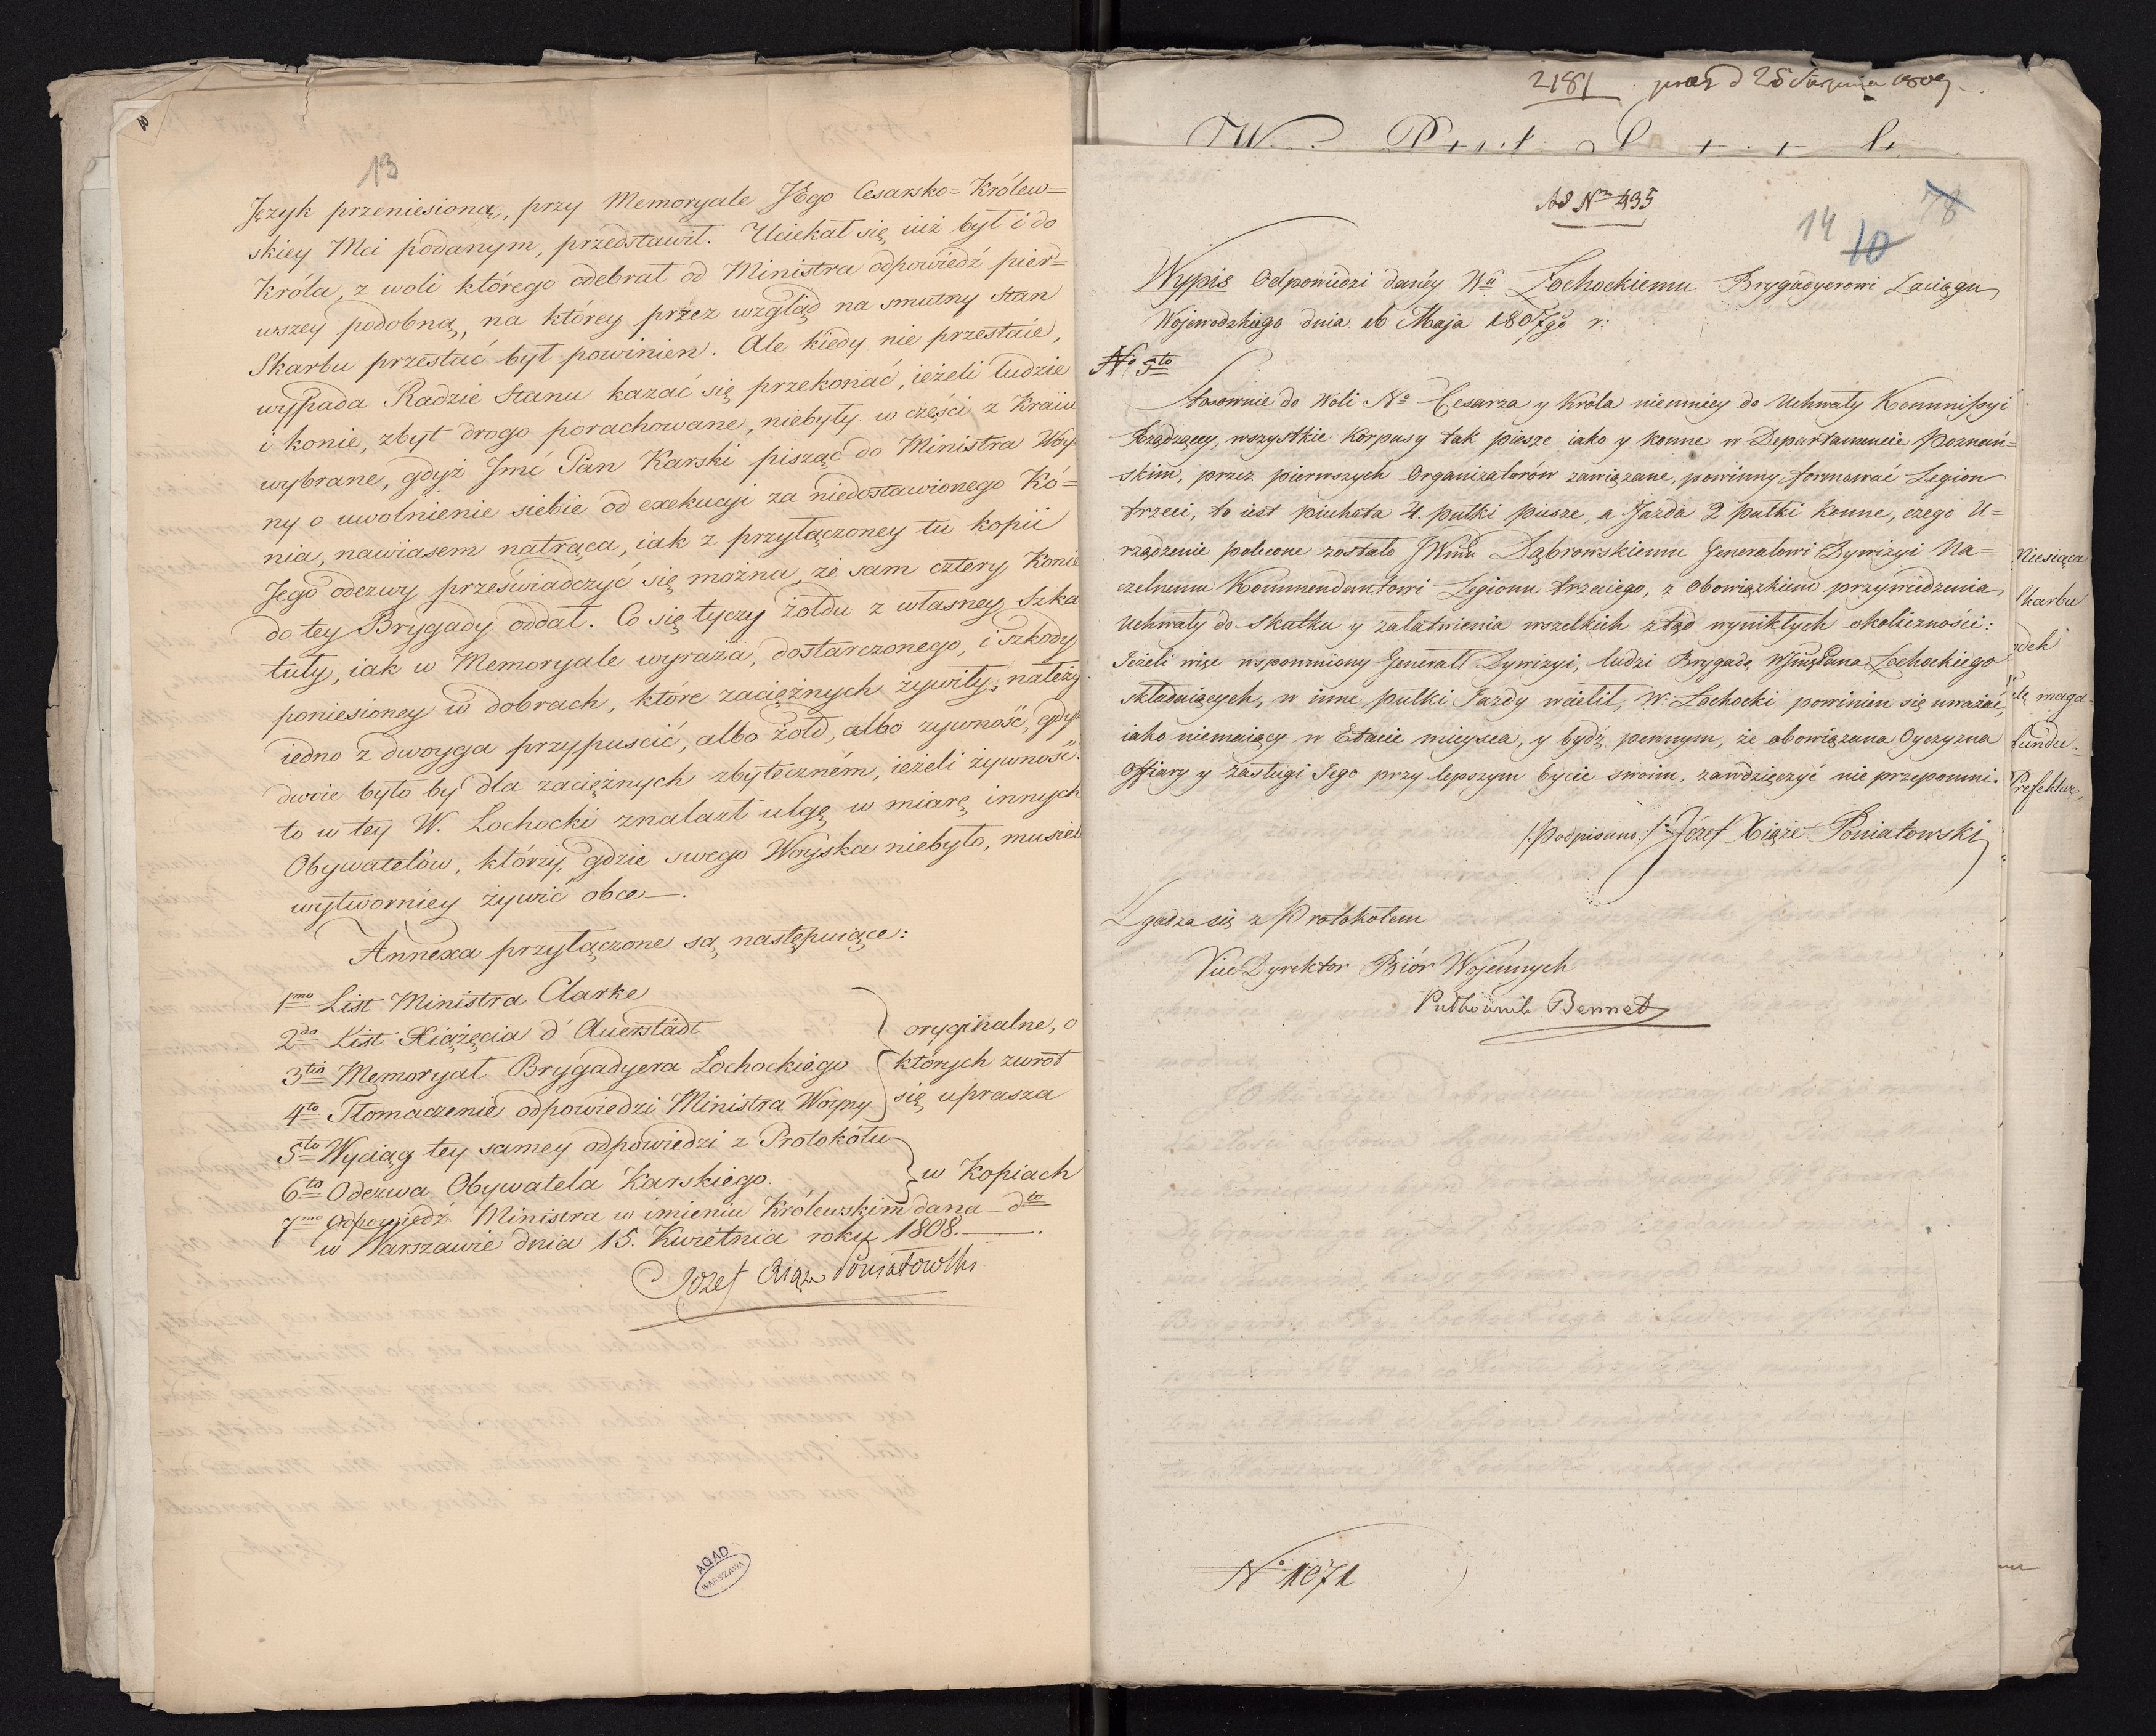 10
13
Język przeniesioną, przy Memoryale JEgo Cesarsko=Królew=
skiey Mci podanym, przedstawił. Uciekał się iuż był i do
Króla, z woli którego odebrał od Ministra odpowiedź pier=
wszey podobną, na którey przez wzgląd na smutny stan
Skarbu przestać był powinien. Ale kiedy nie przestaie,
wypada Radzie Stanu kazać się przekonać, ieżeli ludzie
i konie, zbyt drogo porachowane, niebyły w części z Kraiu
wybrane, gdyż Jmć Pan Karski pisząc do Ministra Woy=
ny o uwolnienie siebie od exekucyi za niedostawionego Ko=
nia, nawiasem natrąca, iak z przyłączoney tu kopii
Jego odezwy przeświadczyć się można, że sam cztery Konie
do tey Brygady oddał. Co się tyczy żołdu z własney Szka
tuły, iak w Memoryale wyraża, dostarczonego, i szkody
poniesioney w dobrach, które zaciężnych żywiły, należy
iedno z dwoyga przypuscić, albo żołd, albo zywność, gdy
dwoie było by dla zaciężnych zbyteczném, ieżeli żywność:
to w tey W. Łochocki znalazł ulgę w miarę innych
Obywatelów, którzy, gdzie swego Woyska niebyło, musiel
wytworniey żywić obce —.
Annexa przyłączone są następuiące:
1mo List Ministra Clarke
2do List Xiążęcia d'Auerstädt
3tio Memoryał Brygadyera Łochockiego
4to Tłomaczenie odpowiedzi Ministra Woyny
oryginalne, o
których zwrot
się uprasza
5to Wyciąg tey samey odpowiedzi z Protokółu
6to Odezwa Obywatela Karskiego.
w Kopiach
7mo Odpowiedź Ministra w imieniu Królewskim dana — dto
w Warszawie dnia 15. Kwietnia roku 1808. —.
Jozef Xiąże Poniatowski
AGAD
WARSZAWA
2181 praes d 25 Sierpnia 1809
Ad Nm 435
14 10 78
Wypis Odpowiedzi danéy Wu Łochockiemu Brygadyerowi Zaciągu
Wojewodzkiego dnia 16 Maja 1807go r:
No 5to
Stosownie do Woli No Cesarza y Króla niemniey do Uchwały Kommissyi
Rządzącey, wszystkie Korpusy tak piesze iako y konne w Departamencie Poznań=
skim, przez pierwszych Organizatorów zawiązane, powinny formować Legion
trzeci, to iest piechota 4. pułki piesze, a Jazda 2 pułki konne, czego U=
rządzenie polecone zostało JWmu Dąbrowskiemu Generałowi Dywizyi Na=
czelnemu Kommendantowi Legionu trzeciego, z Obowiązkiem przywiedzenia
Uchwały do skutku y załatwienia wszelkich ztąd wynikłych okoliczności:
Jeżeli więc wspomniony Generał Dywizyi, ludzi Brygadę WJmć Pana Łochockiego
składaiących, w inne pułki Jazdy wcielił, W: Łochocki powinien się uważać,
iako niemaiący w Etacie mieysca, y bydź pewnym, że obowiązana Oyczyzna
Offiary y zasługi Jego przy lepszym bycie swoim, zawdzięczyć nie przepomni.
/:Podpisano:/ Józef Xiąże Poniatowski
Zgadza się z Protokołem
Vice Dyrektor Biór Wojennych
Pułkownik Bennet
No 1071
Niesiąca
Skarbu
maga
fundu=
Prefekturę,